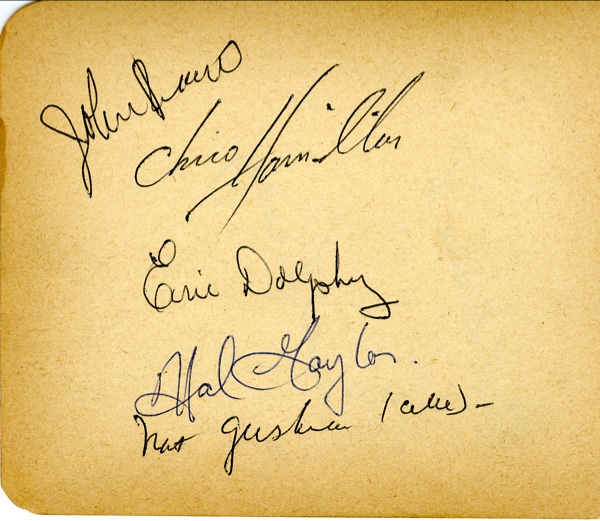 John Pisano
Chico Hamilton
Eric Dolphy
Hal Gaylor.
Nat Gershman (cello) -